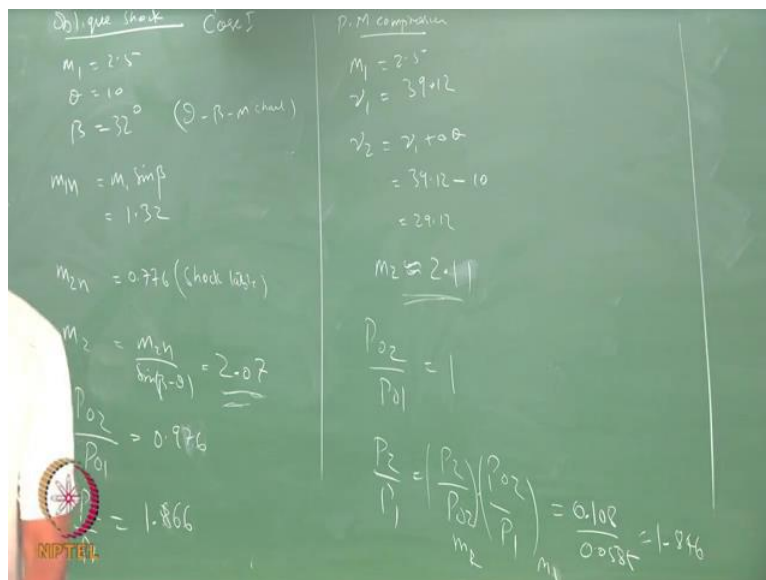 Oblique shock Case I
M₁ = 2.5
θ = 10
β = 32° (θ-β-M chart)
M₁n = M₁ sinβ
= 1.32
M₂n = 0.776 (shock table)
M₂ = M₂n / sin(β-θ) = 2.07
P02 / P01 = 0.976
= 1.866
P.M compression
M₁ = 2.5
ν₁ = 39.12
ν₂ = ν₁ +
= 39.12 - 10
= 29.12
M₂ ≈ 2.11
P02 / P01 = 1
P₂ / P₁ = (P₂ / P02)M₂ · (P02 / P₁)M₁ = 0.108 / 0.0585 = 1.846
NPTEL